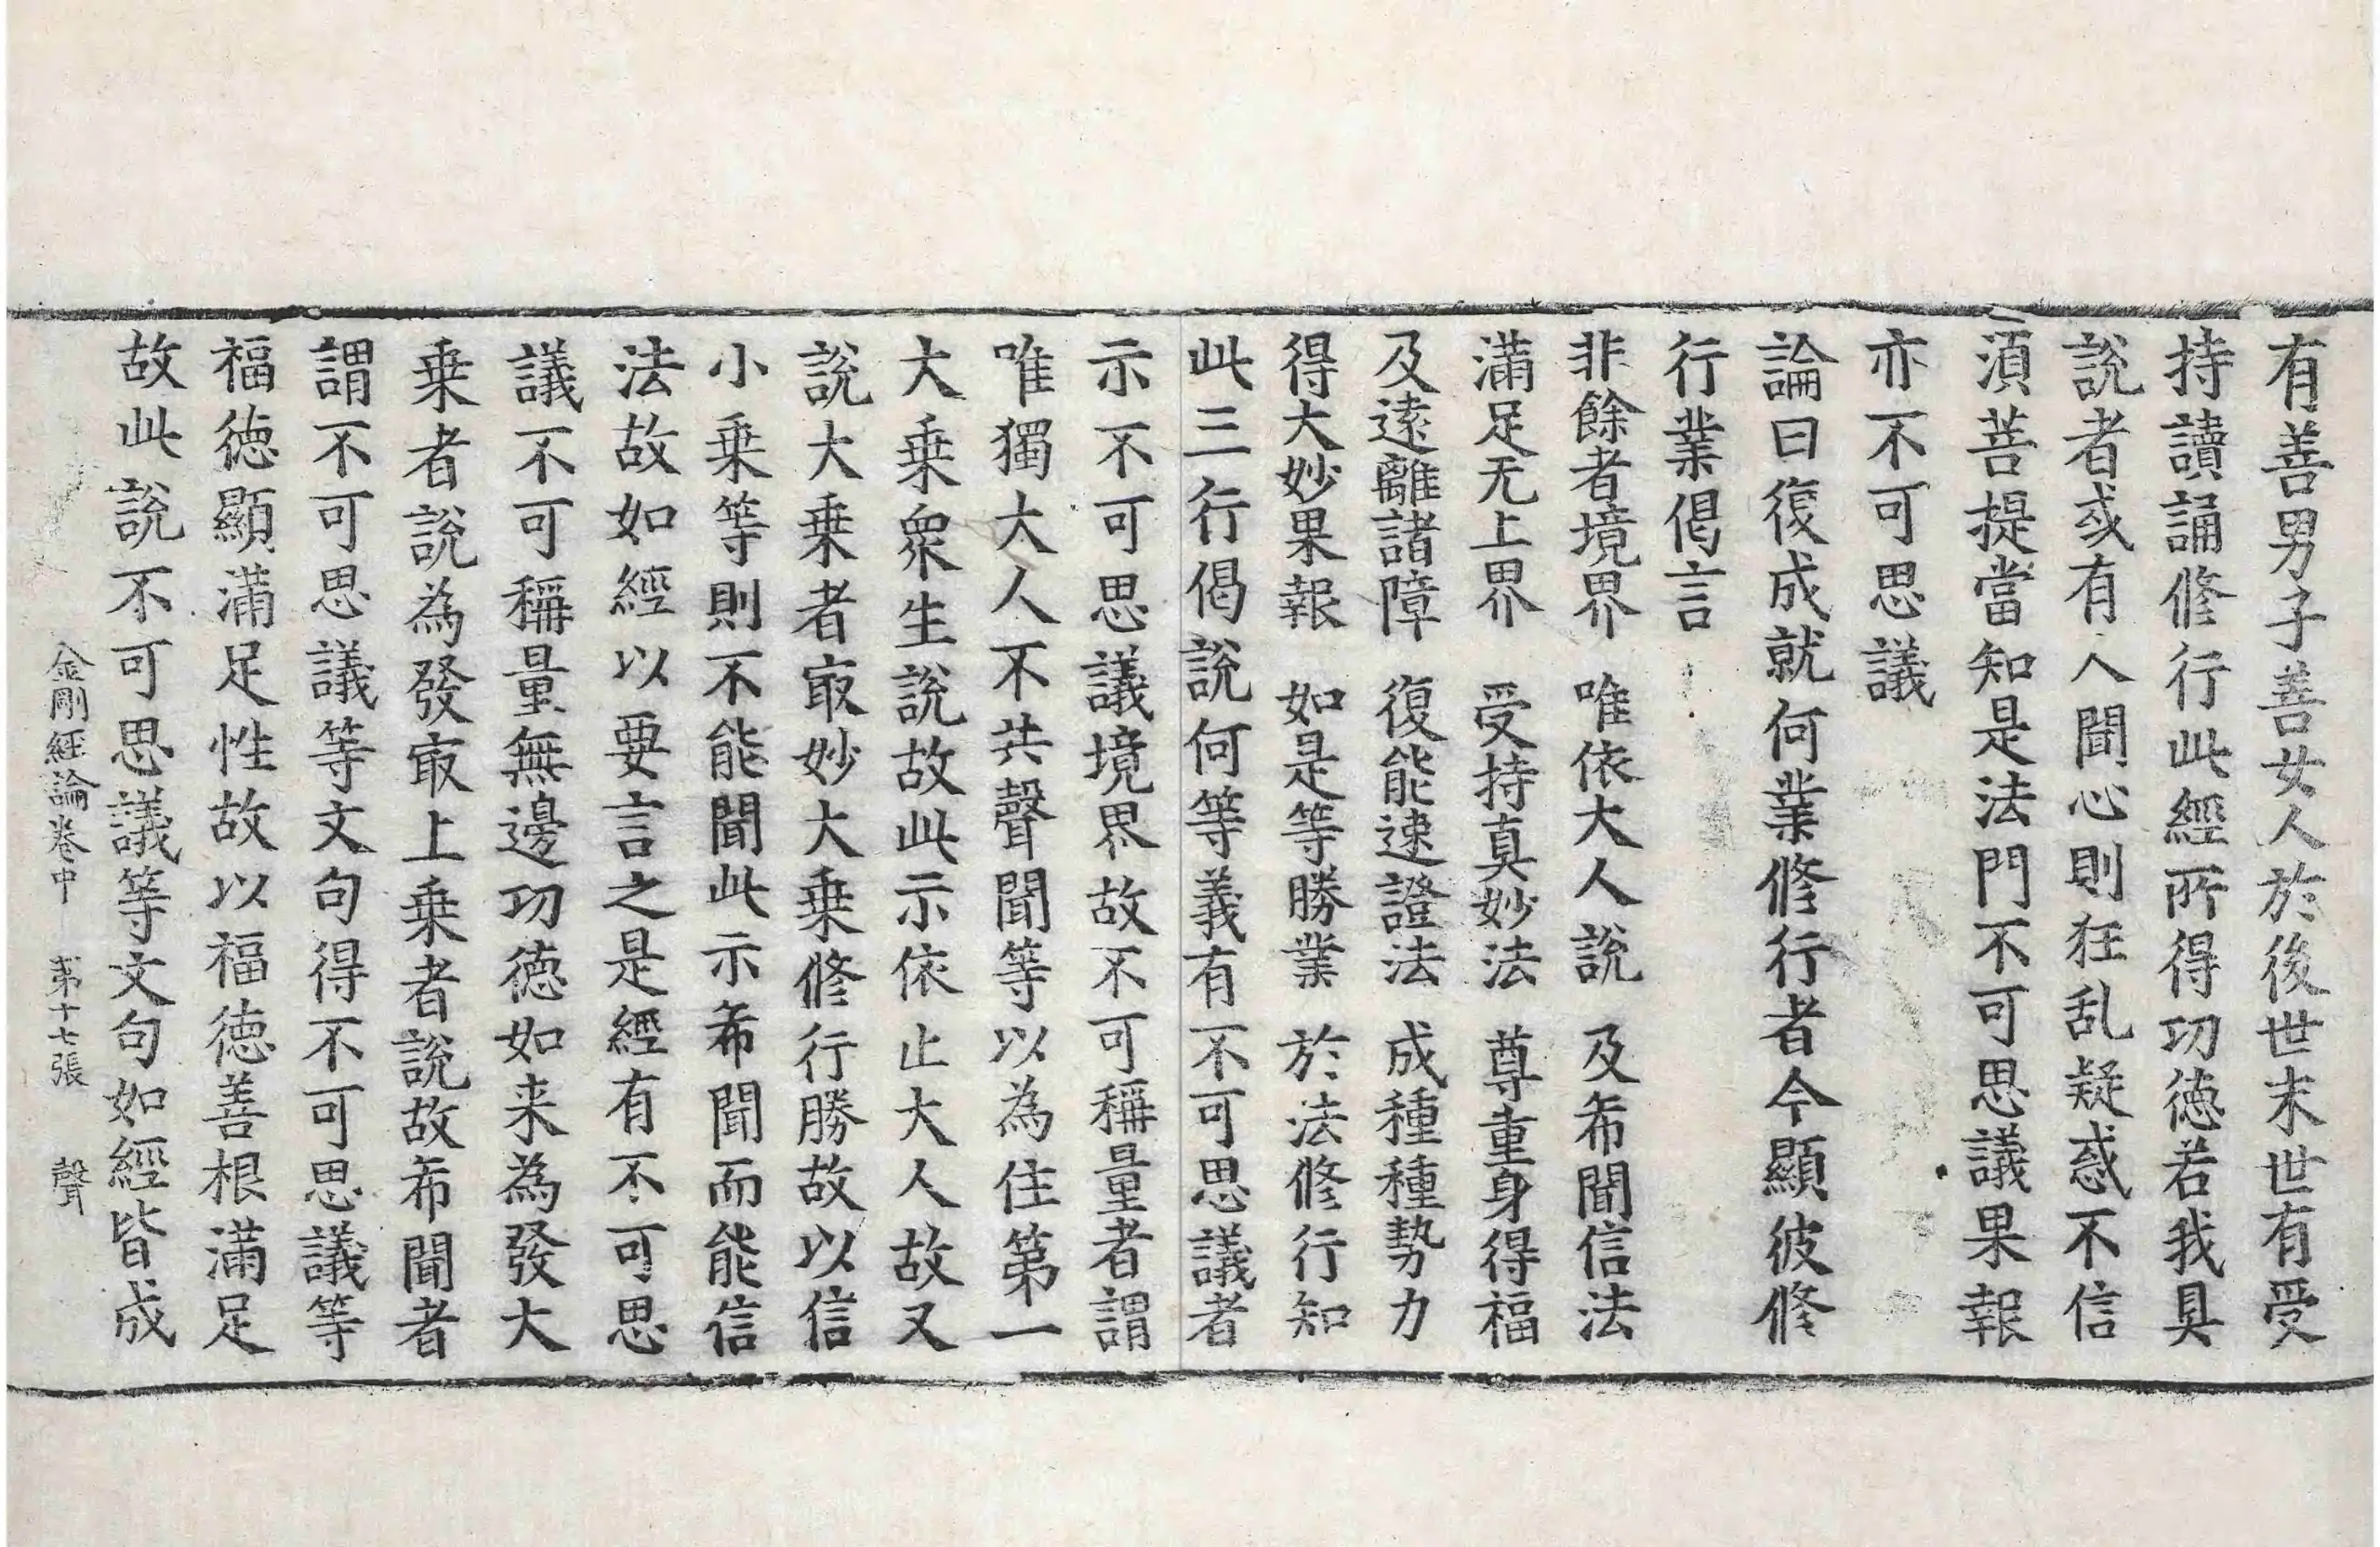 有善男子善女人於後世末世有受
持讀誦修行此經所得功德若我具
說者或有人聞心則狂乱疑惑不信
湏菩提當知是法門不可思議果報
亦不可思議
論曰復成就何業修行者今顯彼修
行業偈言
非餘者境界　唯依大人說　及希聞信法
滿足无上界　受持真妙法　尊重身得福
及遠離諸障　復能速證法　成種種勢力
得大妙果報　如是等勝業　於法修行知
此三行偈說何等義有不可思議者
示不可思議境界故不可稱量者謂
唯獨大人不共聲聞等以為住第一
大乗衆生說故此示依止大人故又
說大乗者㝡妙大乗修行勝故以信
小乗等則不能聞此示希聞而能信
法故如經以要言之是經有不可思
議不可稱量無邊功德如来為發大
乗者說為發㝡上乗者說故希聞者
謂不可思議等文句得不可思議等
福德顯滿足性故以福德善根滿足
故此說不可思議等文句如經皆成
金剛經論卷中　苐十七張　聲